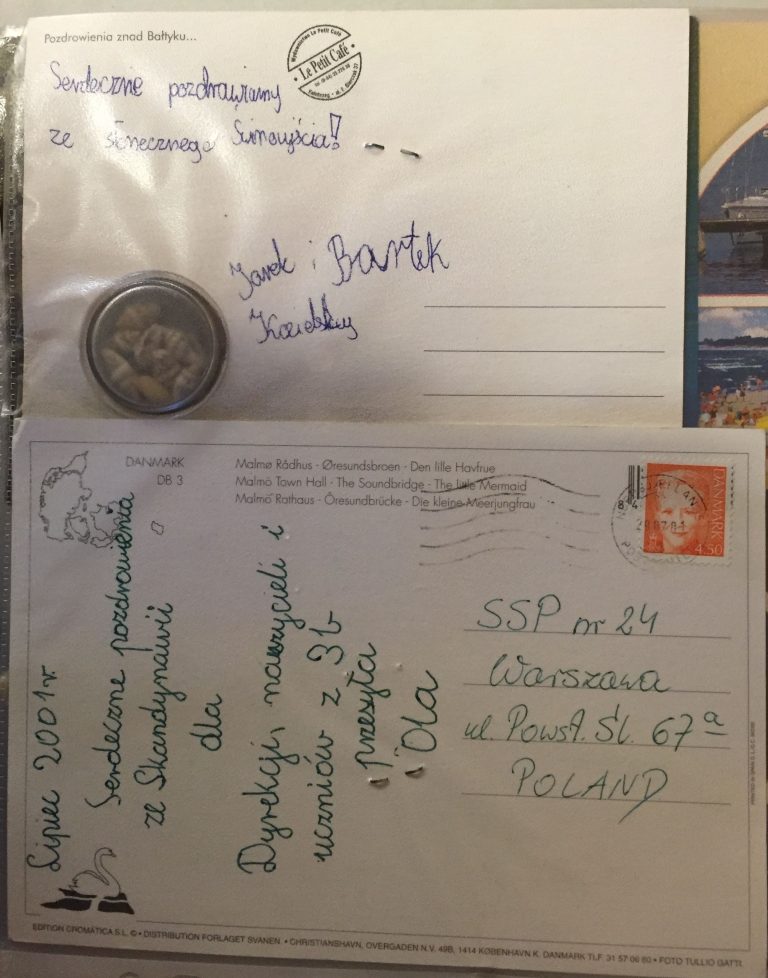 Pozdrowienia znad Bałtyku...
Le Petit Café
Serdecznie pozdrawiamy
ze słonecznego Świnoujścia!
Jarek i Bartek
DANMARK
DB 3
Malmø Rådhus · Øresundsbroen · Den lille Havfrue
Malmö Town Hall · The Soundbridge · The little Mermaid
Malmö Rathaus · Öresundbrücke · Die kleine Meerjungfrau
DANMARK
4.50
Lipiec 2001r.
Serdeczne pozdrowienia
ze Skandynawii
dla
Dyrekcji, nauczycieli i
uczniów z 3b
przesyła
Ola
SSP nr 24
Warszawa
ul. Powst. Śl. 67a
POLAND
EDITION CROMATICA S.L. © • DISTRIBUTION FORLAGET SVANEN • CHRISTIANSHAVN, OVERGADEN N.V. 49B, 1414 KØBENHAVN K. DANMARK TLF. 31 57 06 60 • FOTO TULLIO GATTI